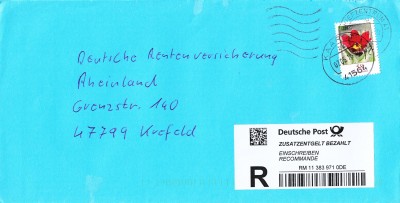 Deutsche Rentenversicherung
Rheinland
Grenzstr. 140
47799 Krefeld
41564
Deutsche Post
ZUSATZENTGELT BEZAHLT
EINSCHREIBEN
RECOMMANDE
R
RM 11 383 971 0DE